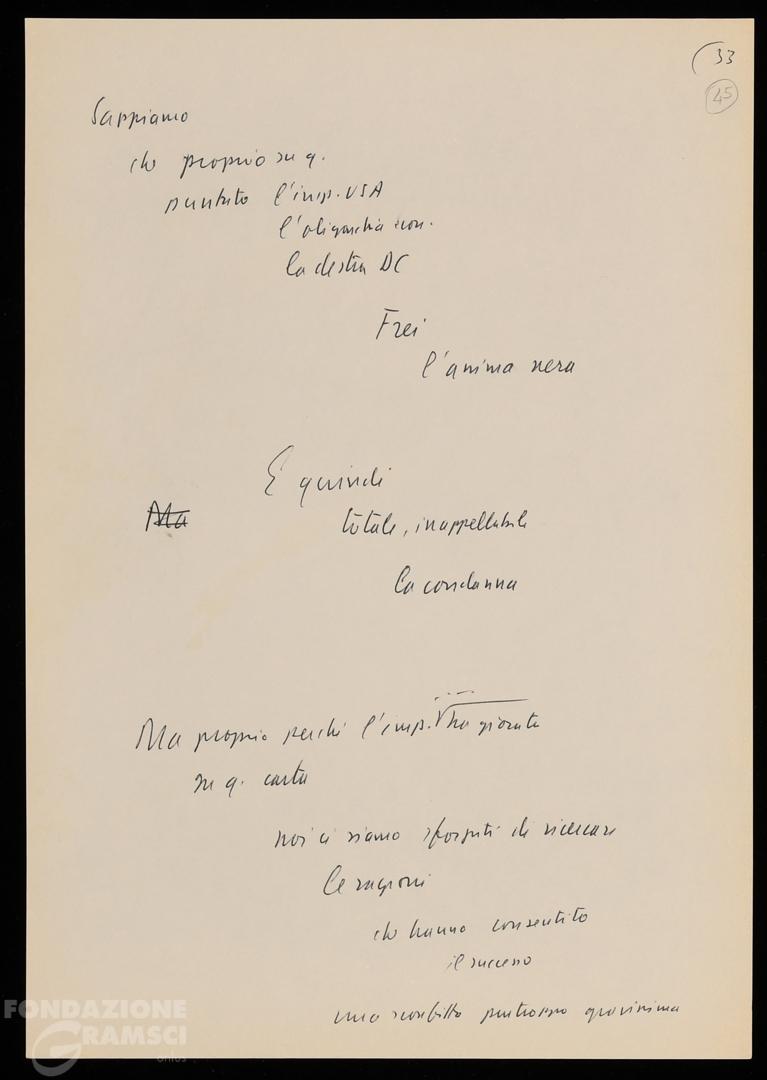 33
45
Sappiamo
che proprio su q.
puntato l'imp. USA
l'oligarchia con.
la destra DC
Frei
l'anima nera
E quindi
Ma
totale, inappellabile
la condanna
Ma proprio perché l'imp. ha giocato
su q. carta
noi ci siamo sforzati di ricercare
le ragioni
che hanno consentito
il successo
una sconfitta purtroppo gravissima
FONDAZIONE
GRAMSCI
onlus